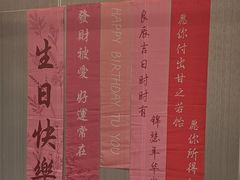 生日快樂
發財被愛 好運常在
HAPPY BIRTHDAY TO YOU
良辰吉日时时有
锦慧年华
愿你付出甘之若饴
愿你所得